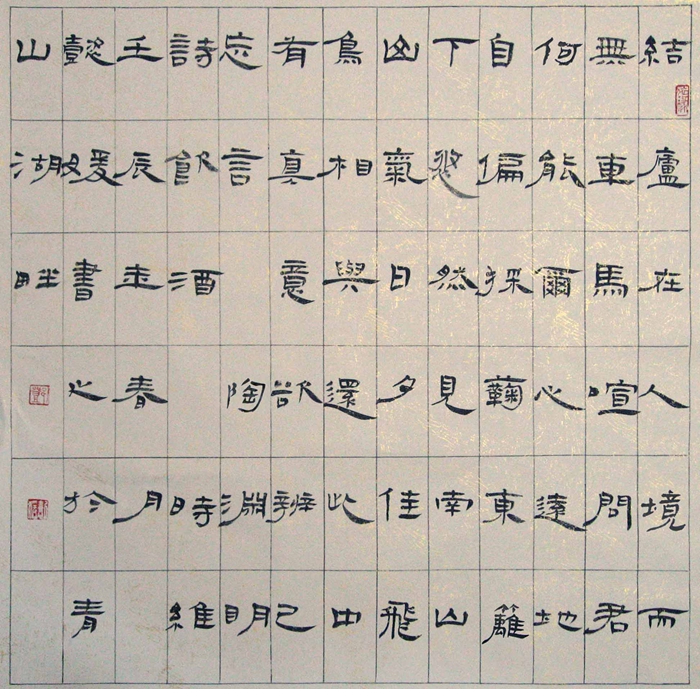 結廬在人境而
無車馬喧問君
何能爾心遠地
自偏採蘜東籬
下悠然見南山
山氣日夕佳飛
鳥相與還此中
有真意欲辨已
忘言 陶淵明
詩飲酒 時維
壬辰年春月
懿媛書之於青
山湖畔